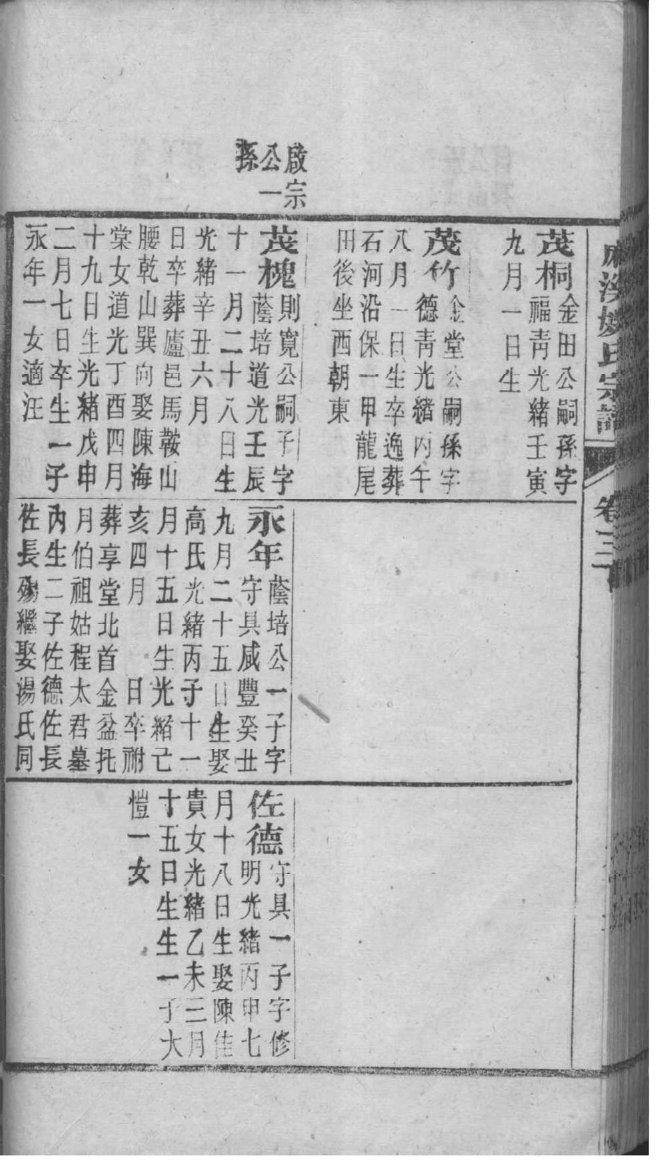 氏宗譜
卷二
茂桐金田公嗣孫字
福青光緒壬寅
九月一日生
茂竹金堂公嗣孫字
德青光緒丙午
八月一日生卒逸葬
石河沿保一甲龍尾
田後坐西朝東
啟宗
公一
孫
茂槐則寬公嗣子字
蔭培道光壬辰
十一月二十八日生
光緒辛丑六月
日卒葬廬邑馬鞍山
腰乾山巽向娶陳海
棠女道光丁酉四月
十九日生光緒戊申
二月七日卒生一子
永年一女適汪
永年蔭培公一子字
守具咸豐癸丑
九月二十五日生娶
高氏光緒丙子十一
月十五日生光緒己
亥四月 日卒祔
葬享堂北首金盆托
月伯祖姑程太君墓
內生二子佐德佐長
佐長殤繼娶湯氏同
佐德守具一子字修
明光緒丙申七
月十八日生娶陳佳
貴女光緒乙未三月
十五日生生一子大
愷一女